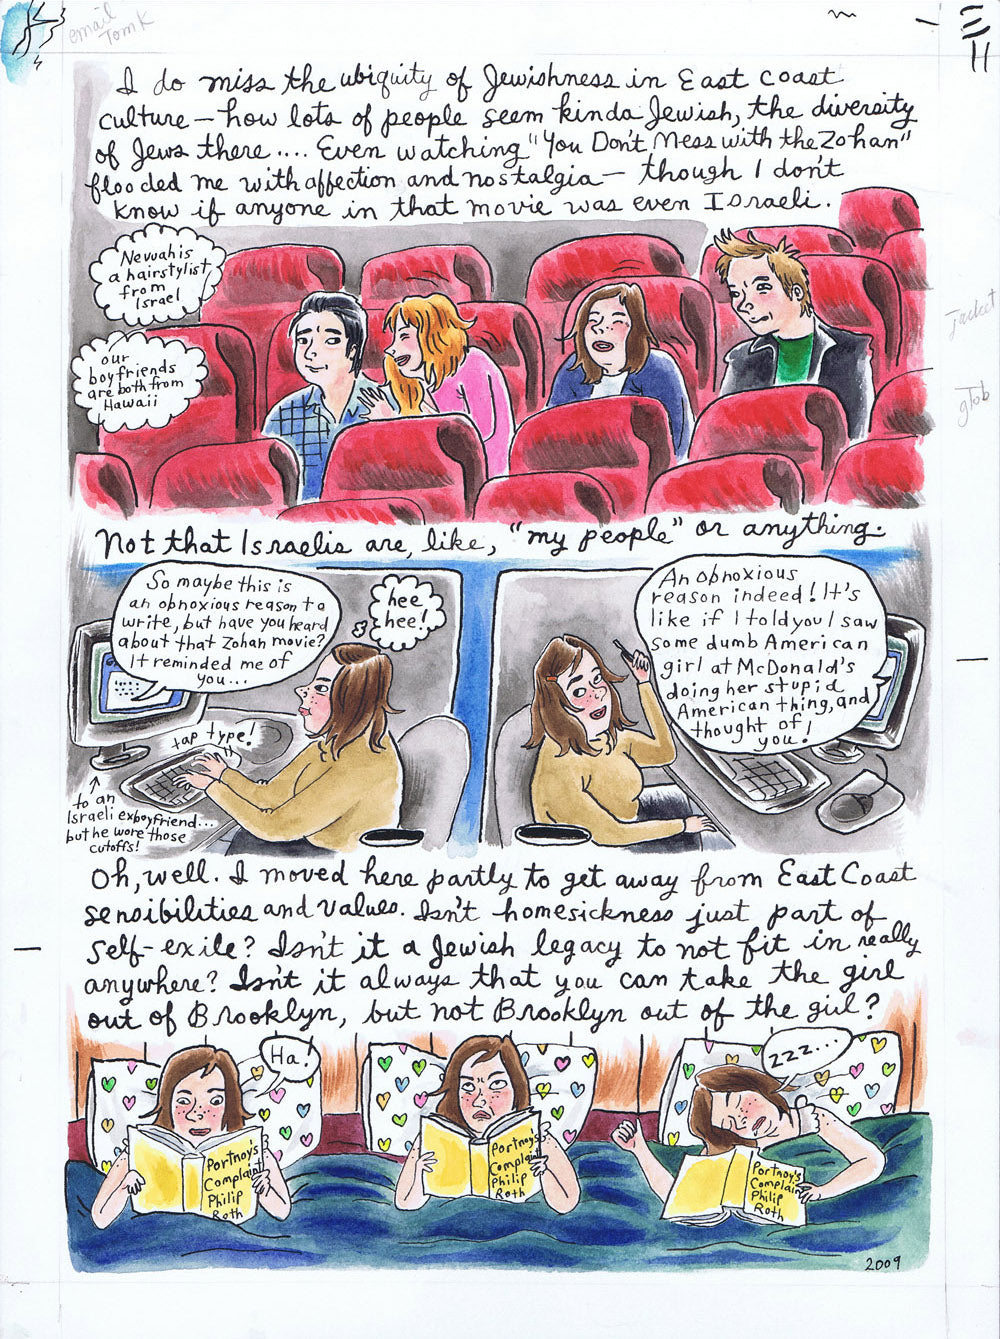 email
Tom K
I do miss the ubiquity of Jewishness in East Coast
culture — how lots of people seem kinda Jewish, the diversity
of Jews there.... Even watching "You Don't Mess with the Zohan"
flooded me with affection and nostalgia — though I don't
know if anyone in that movie was even Israeli.
Nevuah is
a hairstylist
from
Israel
our
boyfriends
are both from
Hawaii
jacket
Not that Israelis are, like, "my people" or anything.
So maybe this is
an obnoxious reason to
write, but have you heard
about that Zohan movie?
It reminded me of
you...
hee
hee!
tap type!
to an
Israeli exboyfriend...
but he wore those
cutoffs!
An obnoxious
reason indeed! It's
like if I told you I saw
some dumb American
girl at McDonald's
doing her stupid
American thing, and
thought of
you!
Oh, well. I moved here partly to get away from East Coast
sensibilities and values. Isn't homesickness just part of
self-exile? Isn't it a Jewish legacy to not fit in really
anywhere? Isn't it always that you can take the girl
out of Brooklyn, but not Brooklyn out of the girl?
Ha!
Portnoy's
Complaint
Philip
Roth
Portnoy's
Complain
Philip
Roth
zzz...
Portnoy's
Complain
Philip
Roth
2009